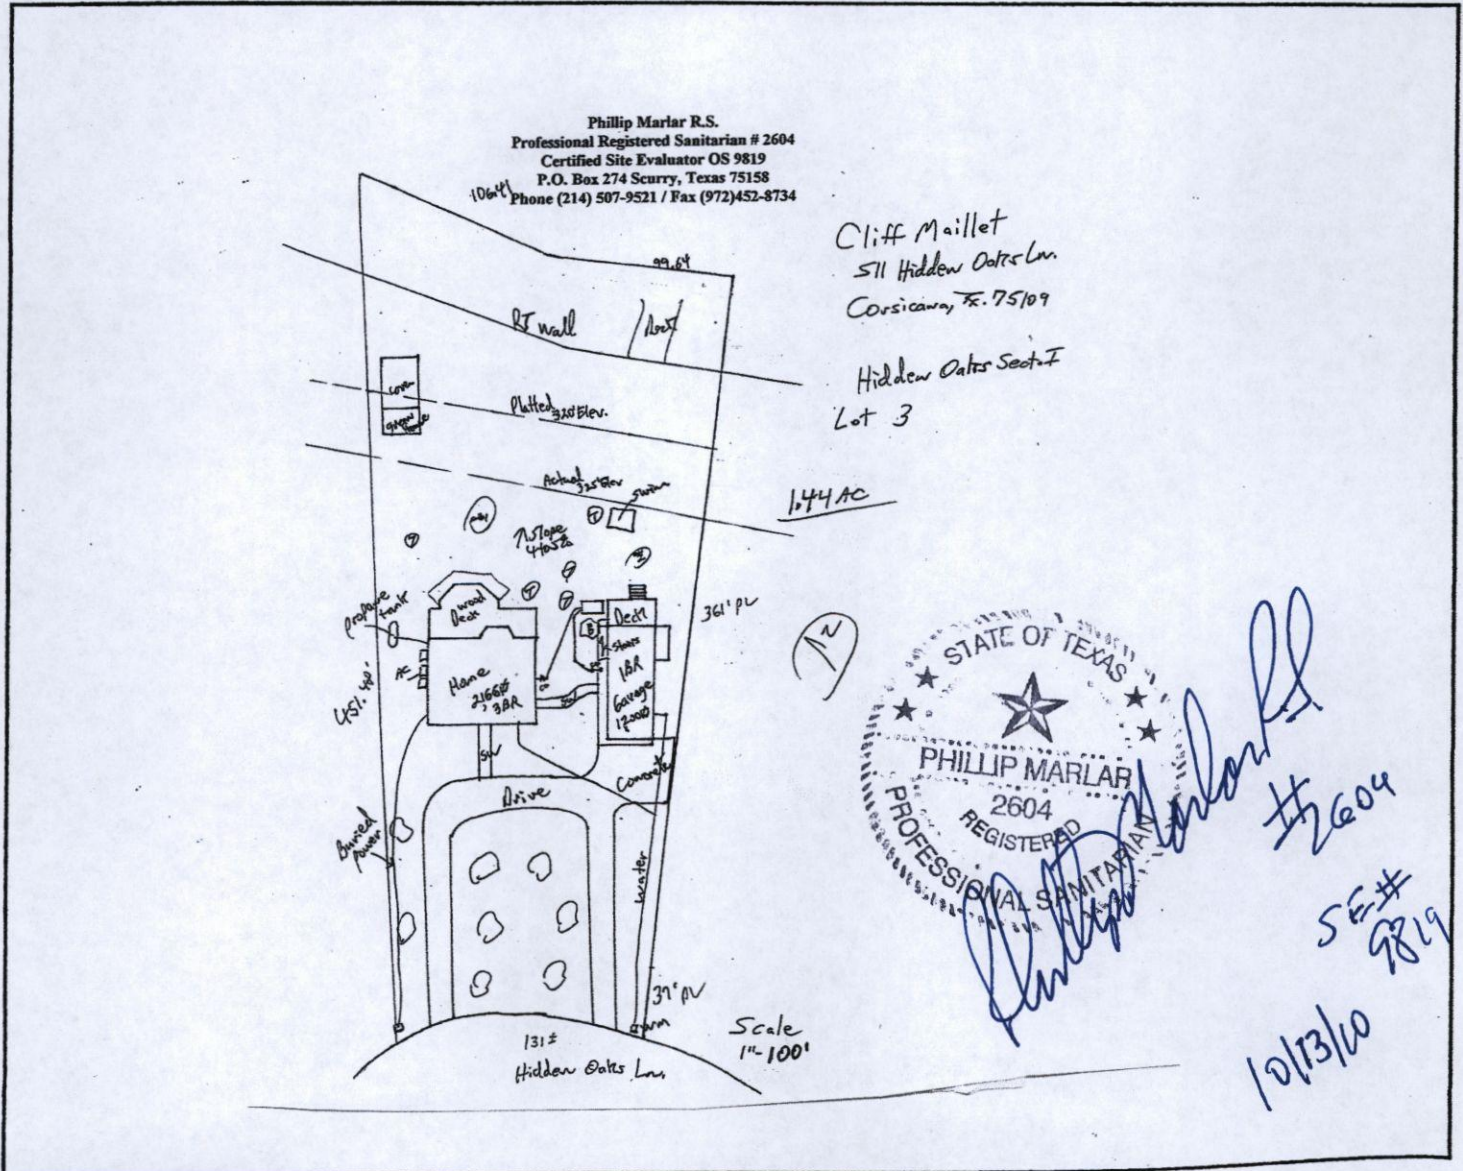 Phillip Marlar R.S.
Professional Registered Sanitarian # 2604
Certified Site Evaluator OS 9819
P.O. Box 274 Scurry, Texas 75158
Phone (214) 507-9521 / Fax (972)452-8734
106.41
99.64
Cliff Maillet
511 Hidden Oaks Ln.
Corsicana, Tx. 75109
Hidden Oaks Sect. I
Lot 3
1.44 AC
RT wall
Cover
Green
Platted 320' Elev.
Actual
325' Elev
Swim
Slope
4 to 5%
Propane
tank
Wood
Deck
Deck
361' PL
N
AC
Home
2166
3BR
Stairs
1BR
Garage
1200
SW
Concrete
Drive
Buried
Power
Water
39' PL
WM
131±
Hidden Oaks Ln.
Scale
1"-100'
STATE OF TEXAS
PHILLIP MARLAR
2604
REGISTERED
PROFESSIONAL SANITARIAN
Phillip Marlar RS
#2604
SE#
9819
10/13/10